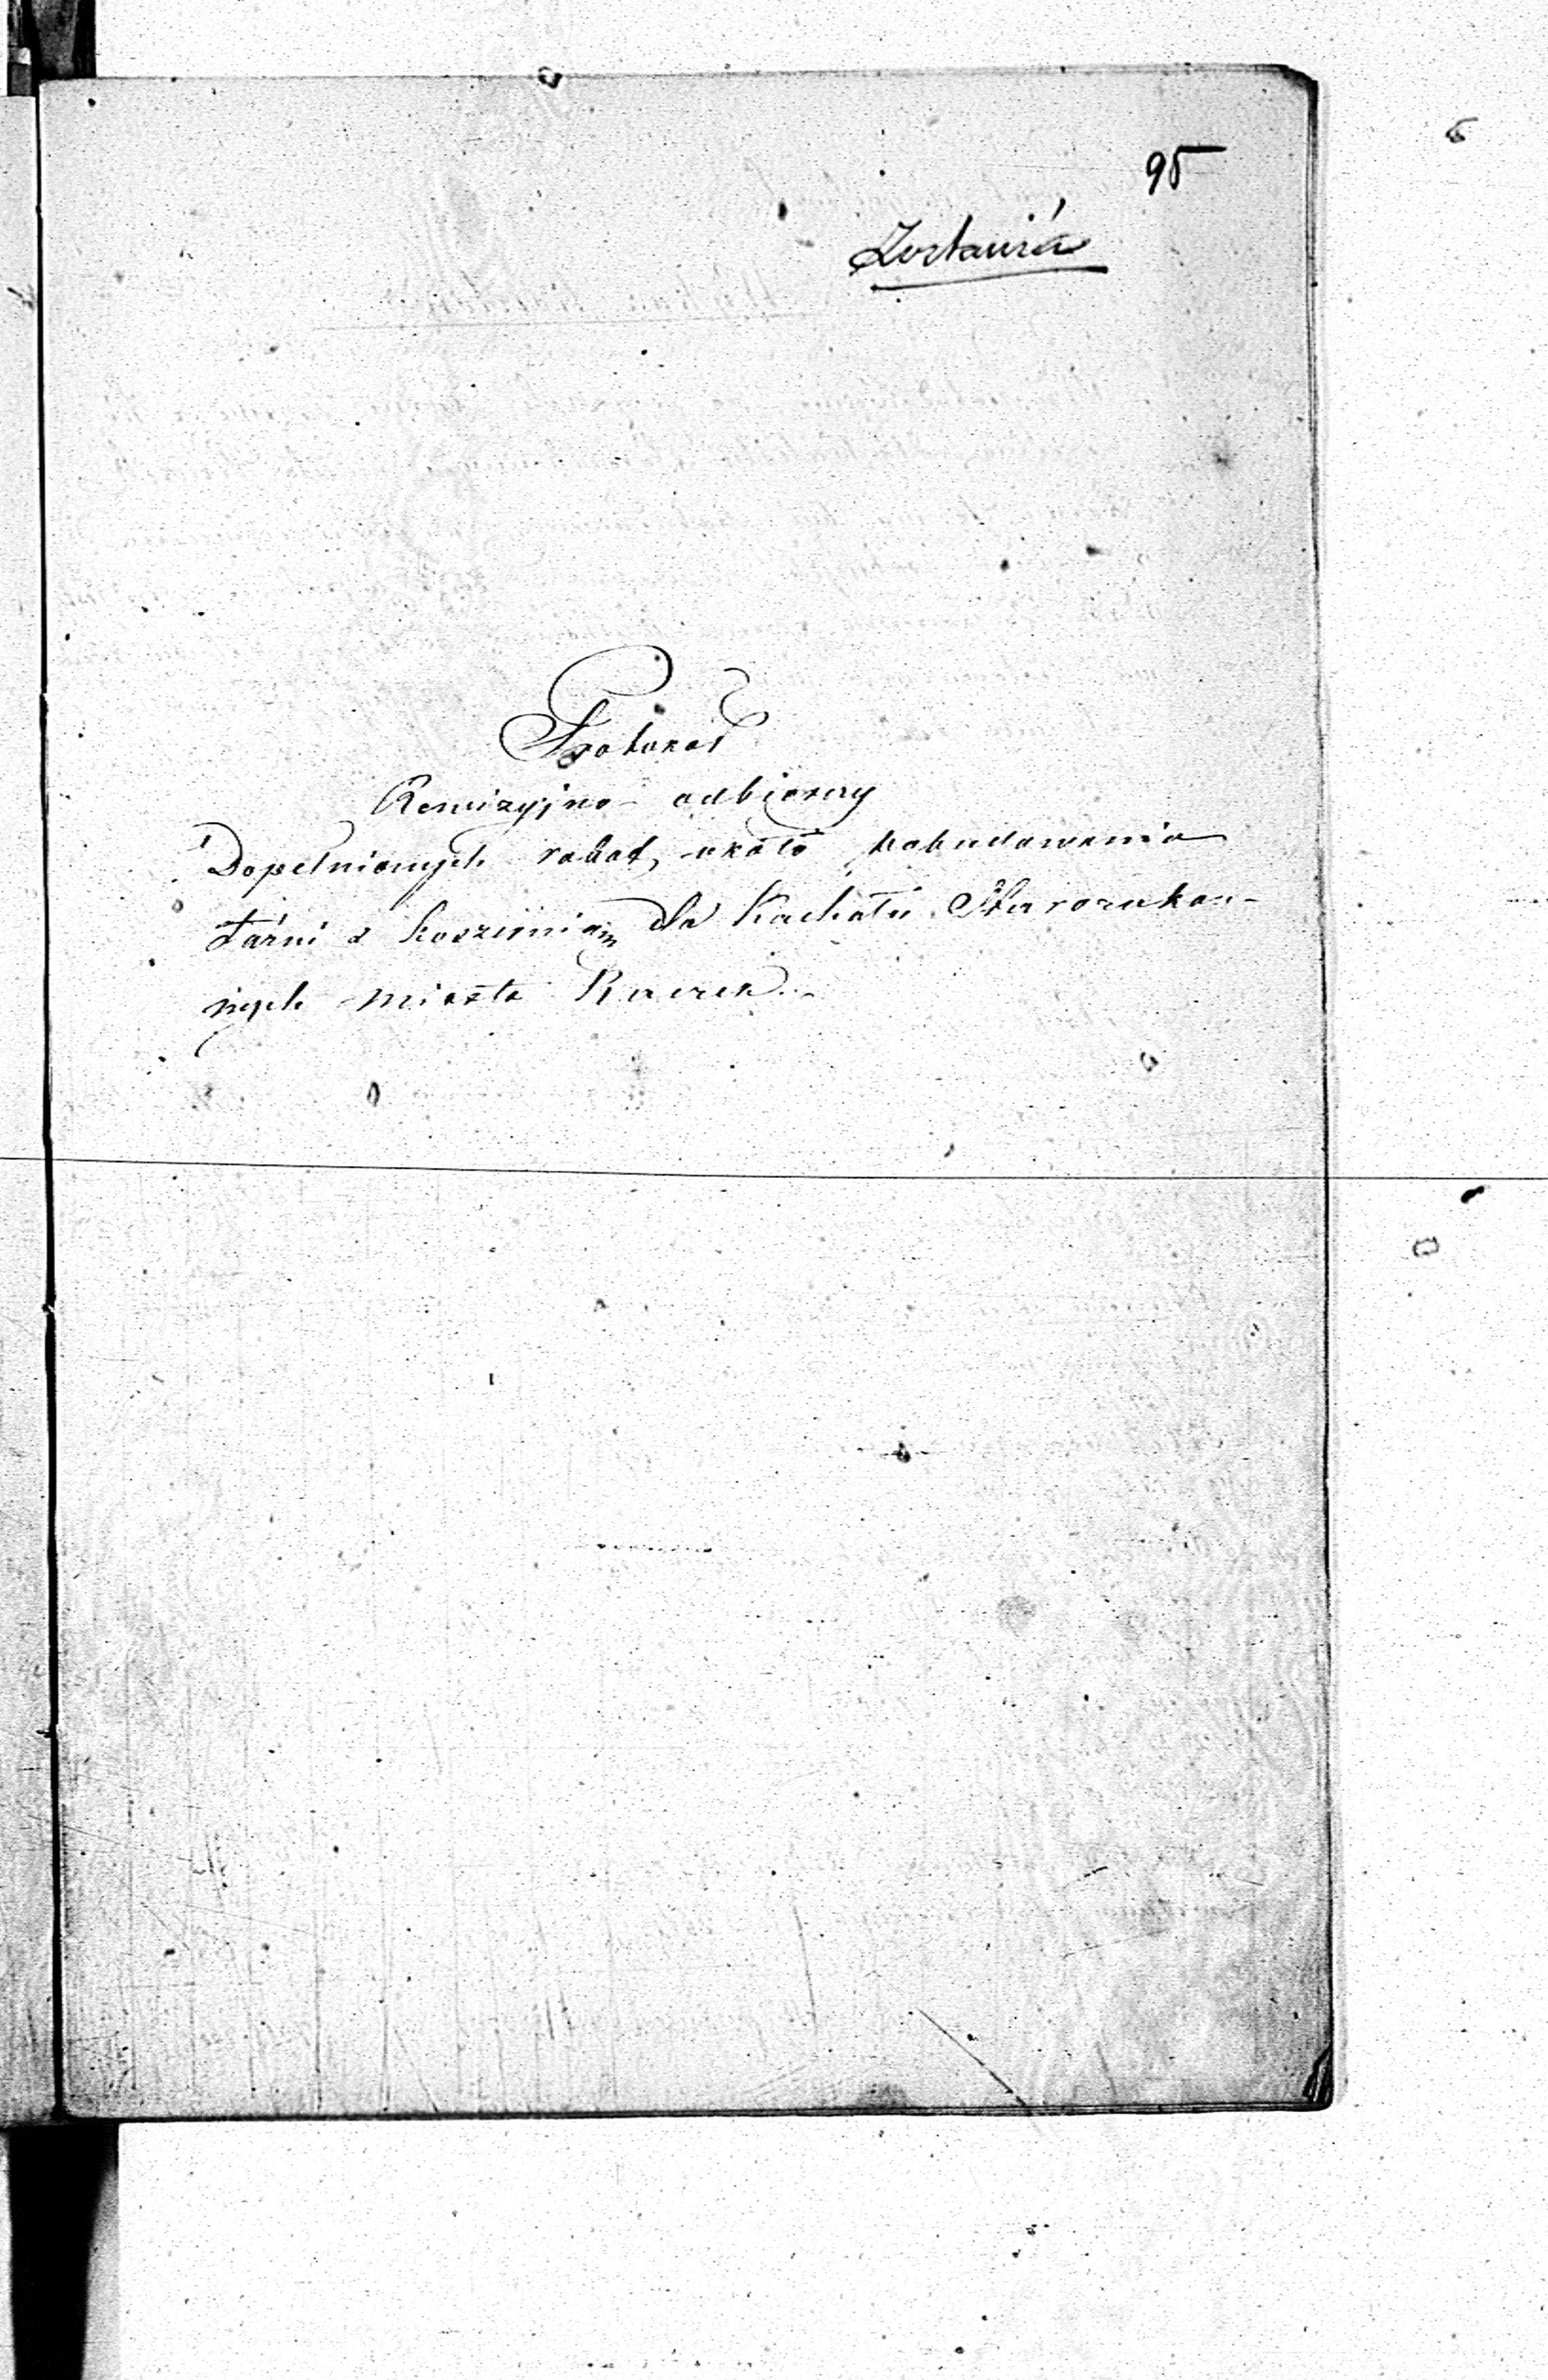 95
Zostawić
Protokół
Rewizyjno-odbiorczy
Dopełnionych robot, około pobudowania
Łaźni z dla Kachału Starozakon-
nych miasta